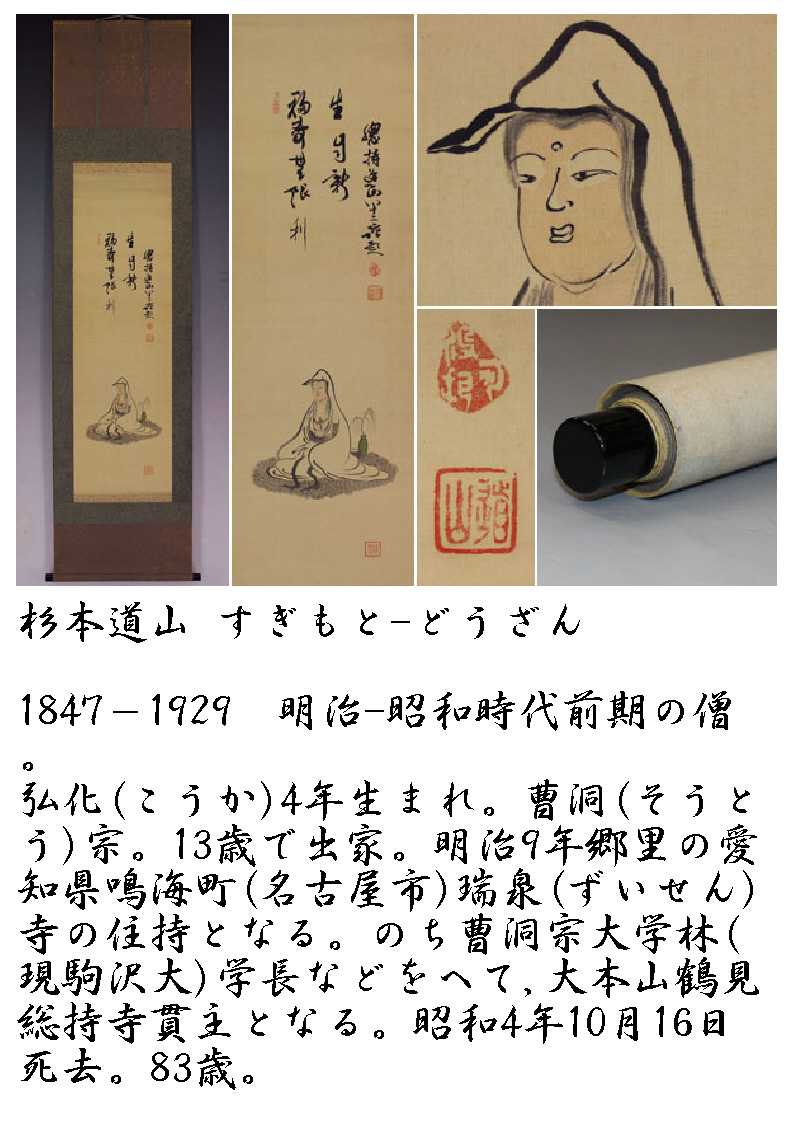 總持道山
生
福壽
道山
杉本道山 すぎもと−どうざん
1847−1929 明治−昭和時代前期の僧
。
弘化(こうか)4年生まれ。曹洞(そうと
う)宗。13歳で出家。明治9年郷里の愛
知県鳴海町(名古屋市)瑞泉(ずいせん)
寺の住持となる。のち曹洞宗大学林(
現駒沢大)学長などをへて,大本山鶴見
総持寺貫主となる。昭和4年10月16日
死去。83歳。